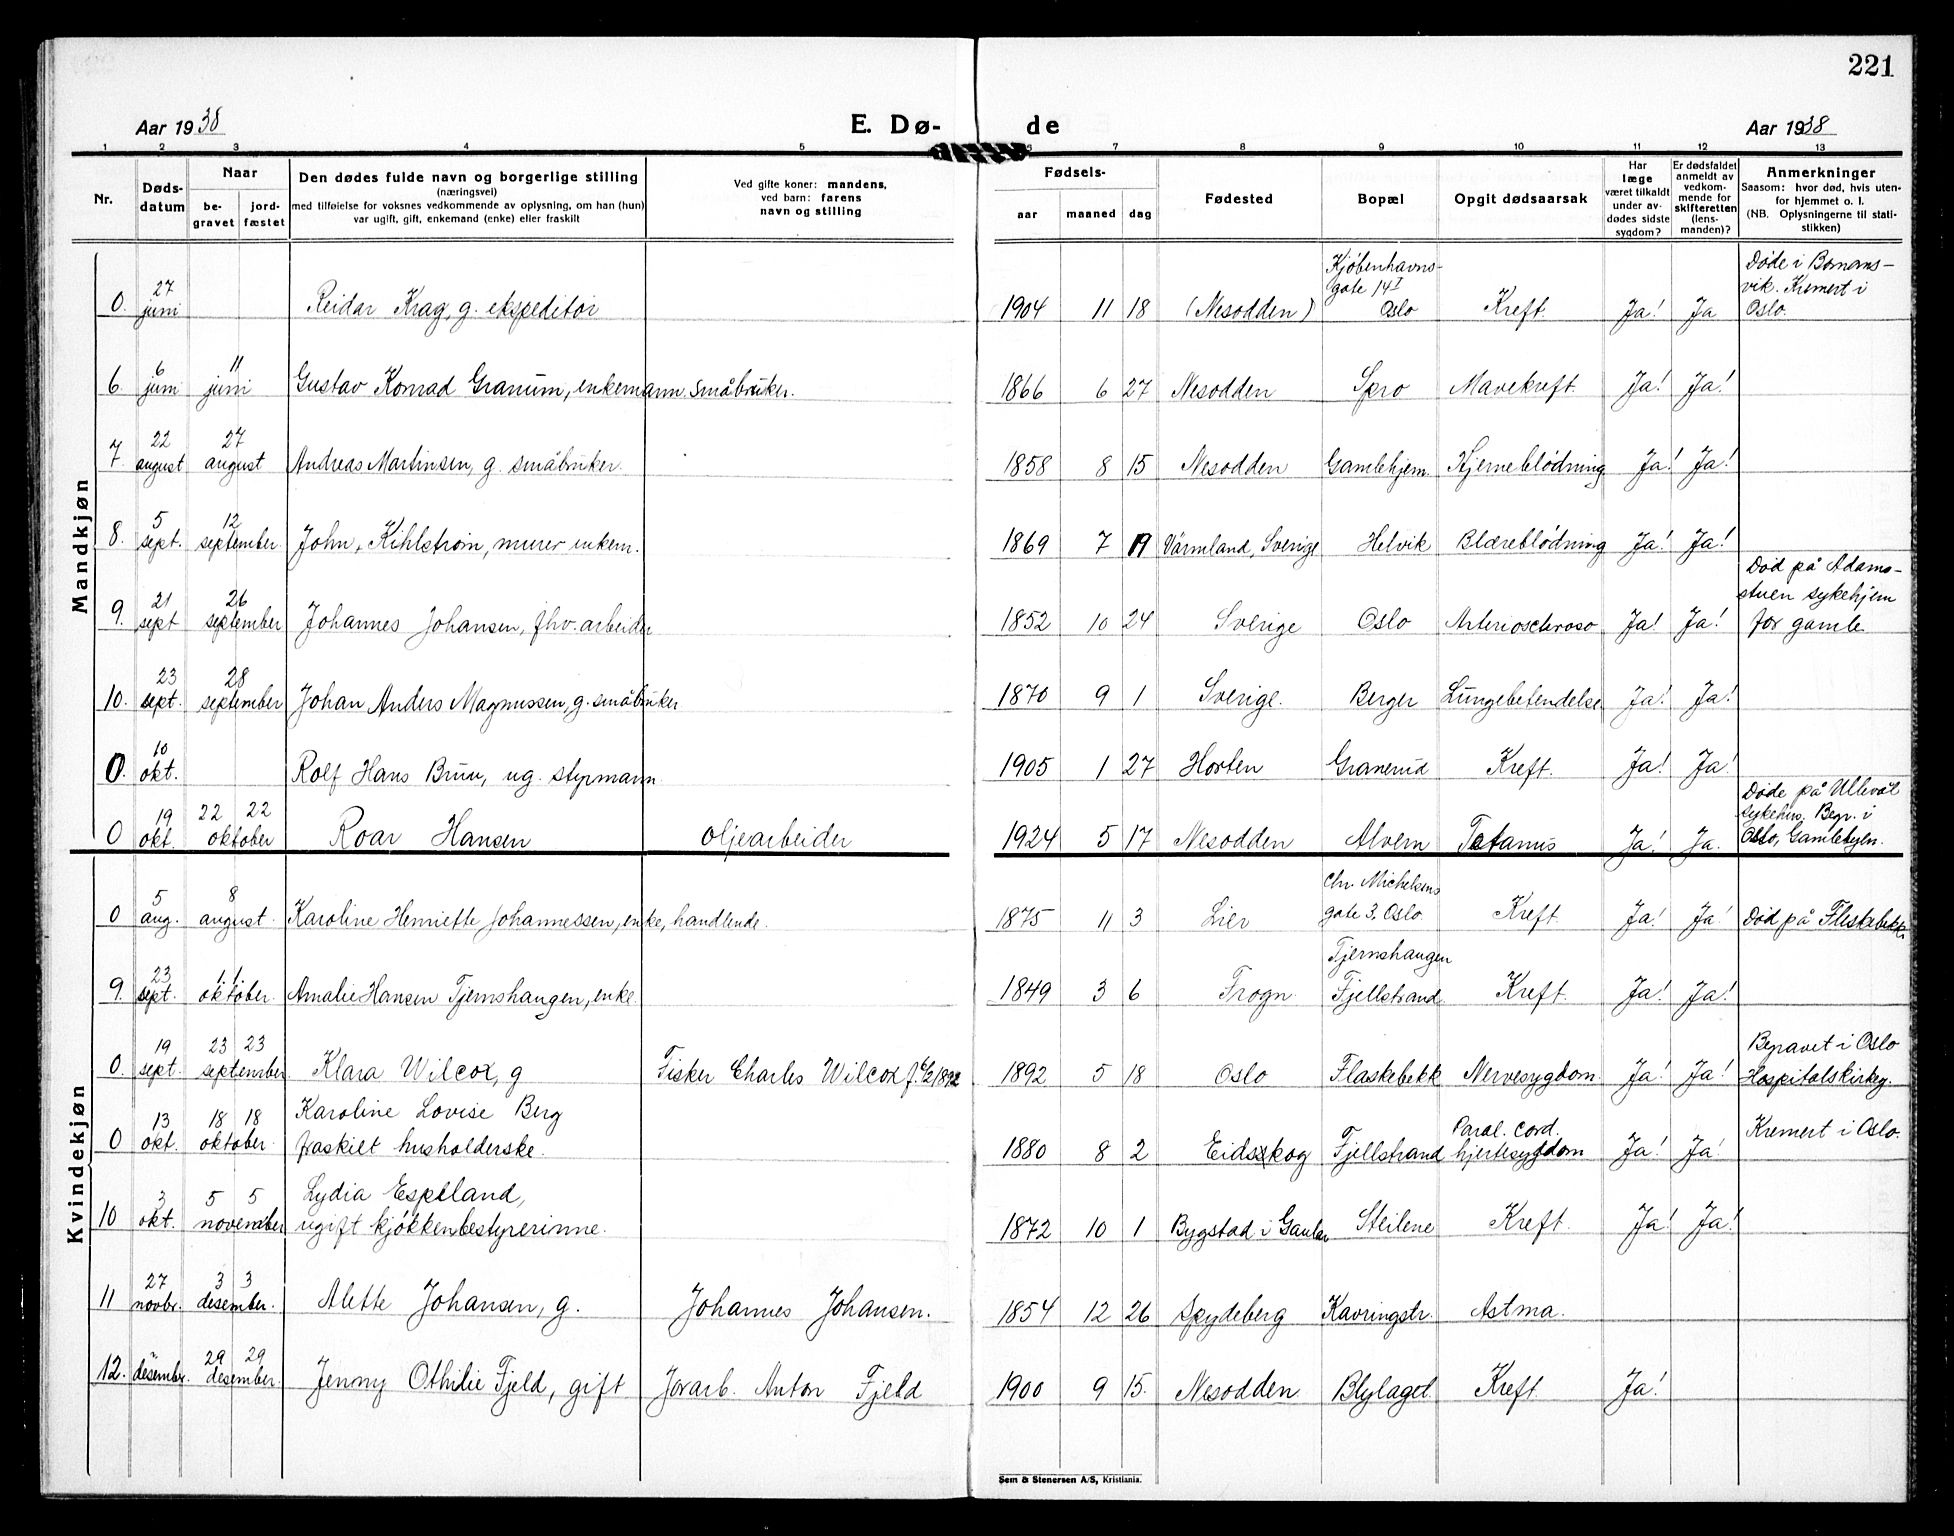 221
Aar 1938 E. Dø- de Aar 1938
1 2 3 4 5 6 7 8 9 10 11 12 13
Nr. Døds-datum Naar be-gravet jord-fæstet Den dødes fulde navn og borgerlige stilling (næringsvei) med tilføielse for voksnes vedkommende av oplysning, om han (hun) var ugift, gift, enkemand (enke) eller fraskilt Ved gifte koner: mandens, ved barn: farens navn og stilling Fødsels- aar maaned dag Fødested Bopæl Opgit dødsaarsak Har læge været tilkaldt under av-dødes sidste sygdom? Er dødsfaldet anmeldt av vedkom-mende for skifteretten (lens-manden)? Anmerkninger Saasom: hvor død, hvis uten-for hjemmet o. l. (NB. Oplysningerne til stati-stikken)
Mandkjøn
0. 27 juni Reidar Krag, g. ekspeditør 1904 11 18 (Nesodden) Kjøbenhavns-gate 14 I Oslo Kreft. Ja! Ja Døde i Bomans-vik. Kremert i Oslo.
6. 6 juni 11 juni Gustav Konrad Granum, enkemann. småbruker. 1866 6 27 Nesodden Spro Mavekreft. Ja! Ja!
7. 22 august 27 august Andreas Martinsen, g. småbruker. 1858 8 15 Nesodden Gamlehjem. Hjerneblødning Ja! Ja!
8. 5 sept. 12 september John, Kihlstrøm, murer enkem. 1869 7 19 Värmland, Sverige Helvik Blæreblödning Ja! Ja!
9. 21 sept 26 september Johannes Johansen, fhv. arbeider 1852 10 24 Sverige Oslo Arteriosclerose Ja! Ja! Død på Adams-stuen sykehjem for gamle
10. 23 sept. 28 september Johan Anders Magnussen, g. småbruker 1870 9 1 Sverige. Berger Lungebetendelse Ja! Ja!
0. 10 okt. Rolf Hans Bruu, ug. styrmann 1905 1 27 Horten Granerud Kreft. Ja! Ja!
0 19 okt. 22 22 oktober Roar Hansen oljearbeider 1924 5 17 Nesodden Alvern Tetanus Ja! Ja. Døde på Ullevål sykehus. Begr. i Oslo, Gamlebyen.
Kvindekjøn
0 5 aug. 8 august. Karoline Henriette Johannessen, enke, handlende. 1875 11 3 Lier Chr. Michelsens gate 3. Oslo Kreft. Ja! Ja! Død på Fleskebekk
9. 23 sept. 1 1 oktober. Amalie Hansen Tjernshaugen, enke. 1849 3 6 Frogn Tjernshaugen Fjellstrand Kreft. Ja! Ja!
0. 19 sept. 23 23 september Klara Wilcox, g Fisker Charles Wilcox 1892 5 18 Oslo Flaskebekk Nervesygdom. Ja! Ja! Begravet i Oslo Hospitalskirkeg.
0 13 okt. 18 18 oktober. Karoline Lovise Berg fraskilt husholderske. 1880 8 2 Eidskog Fjellstrand Paral. cord. hjertesygdom Ja! Ja! Kremert i Oslo.
10 3 okt. 5 5 november Lydia Espeland, ugift kjøkkenbestyrerinne. 1872 10 1 Bygstad i Gaular Steilene Kreft. Ja! Ja!
11 27 novbr. 3 3 desember. Alette Johansen, g. Johannes Johansen. 1854 12 26 Spydeberg Kavringstr. Astma.
12. desembr. 29 29 desember. Jenny Othilie Fjeld, gift Jorarb. Anton Fjeld 1900 9 15. Nesodden Blylaget. Kreft. Ja!
Sem & Stenersen A/S, Kristiania.